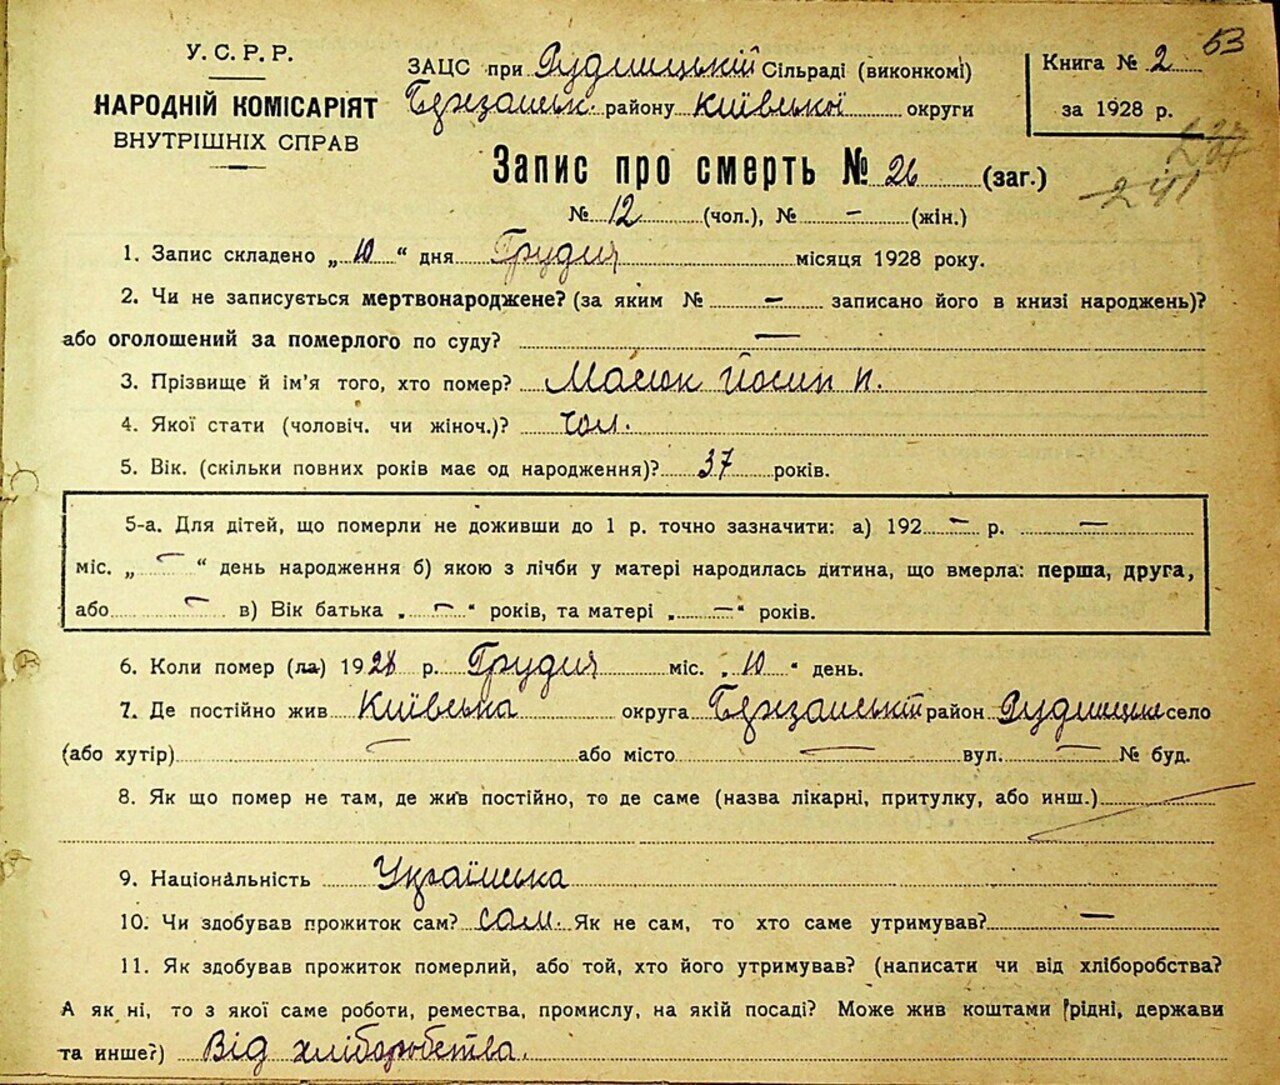 53
У. С. Р. Р.
НАРОДНІЙ КОМІСАРІЯТ
ВНУТРІШНІХ СПРАВ
ЗАЦС при Рудницькій Сільраді (виконкомі)
Березанськ. району Київської округи
Книга № 2
за 1928 р.
241
Запис про смерть № 26 (заг.)
№ 12 (чол.), № – (жін.)
1. Запис складено „ 10 “ дня Грудня місяця 1928 року.
2. Чи не записується мертвонароджене? (за яким № – записано його в книзі народжень)?
або оголошений за померлого по суду? —
3. Прізвище й ім'я того, хто помер? Масюк Йосип П.
4. Якої стати (чоловіч. чи жіноч.)? чол.
5. Вік. (скільки повних років має од народження)? 37 років.
5-а. Для дітей, що померли не доживши до 1 р. точно зазначити: а) 192 – р. —
міс. „ – “ день народження б) якою з лічби у матері народилась дитина, що вмерла: перша, друга,
або – в) Вік батька „ – “ років, та матері „ – “ років.
6. Коли помер (ла) 1928 р. Грудня міс. „ 10 “ день.
7. Де постійно жив Київська округа Березанський район Рудницьке село
(або хутір) — або місто — вул. — № буд.
8. Як що помер не там, де жив постійно, то де саме (назва лікарні, притулку, або инш.)
9. Національність Українська
10. Чи здобував прожиток сам? сам. Як не сам, то хто саме утримував? —
11. Як здобував прожиток померлий, або той, хто його утримував? (написати чи від хліборобства?
А як ні, то з якої саме роботи, ремества, промислу, на якій посаді? Може жив коштами рідні, держави
та инше?) Від хліборобства.